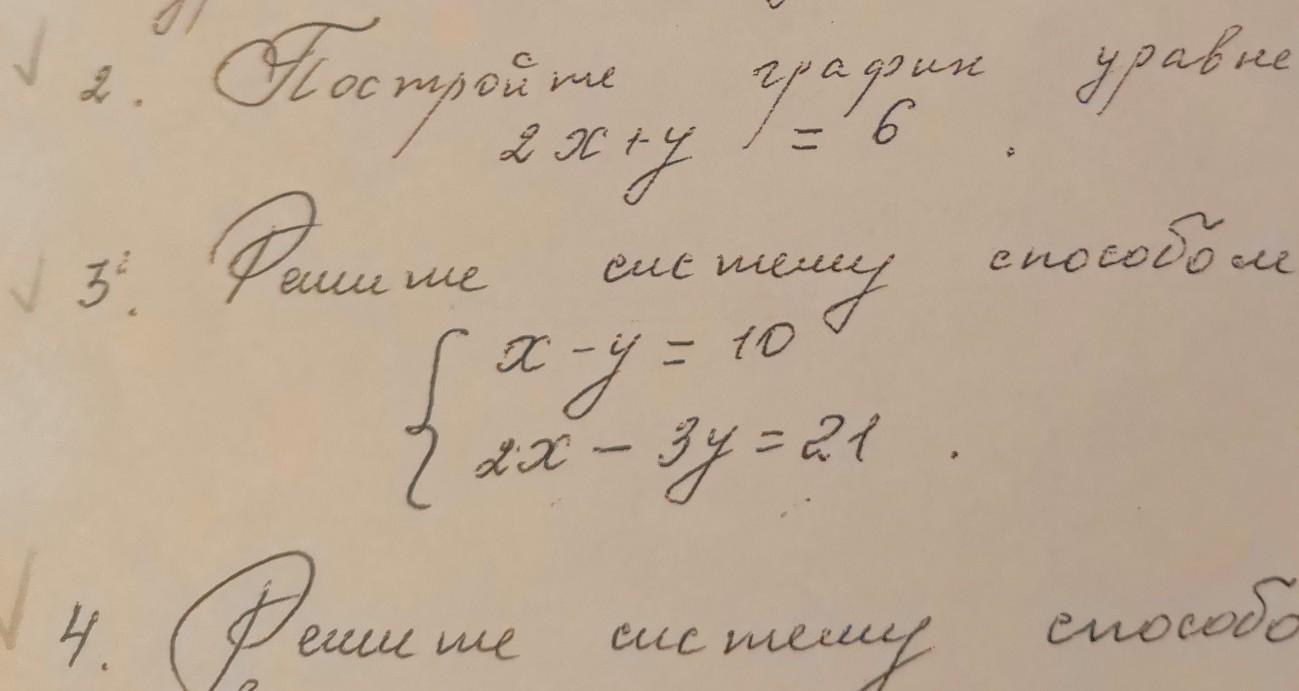 2. Постройте график уравне
2x+y = 6 .
3. Решите систему способом
x - y = 10
2x - 3y = 21 .
4. Решите систему способо